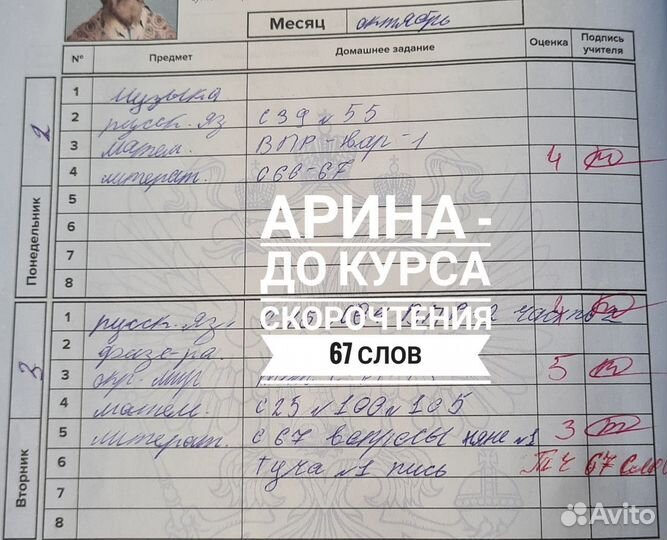 Месяц октябрь
№ Предмет Домашнее задание Оценка Подпись учителя
Понедельник 2
1 музыка
2 русск. яз с 39 № 55
3 матем. ВПР-вар-1
4 литерат. с 66-67 4
5
6
7
8
АРИНА -
ДО КУРСА
СКОРОЧТЕНИЯ
67 СЛОВ
Вторник 3
1 русск. яз. 2 часть
2 физ-ра
3 окр. мир 5
4 матем. с 25 № 100 № 105
5 литерат. с 67 вопросы №1 3
6 туча №1 пись ТЧ 67 слов
7
8
Avito